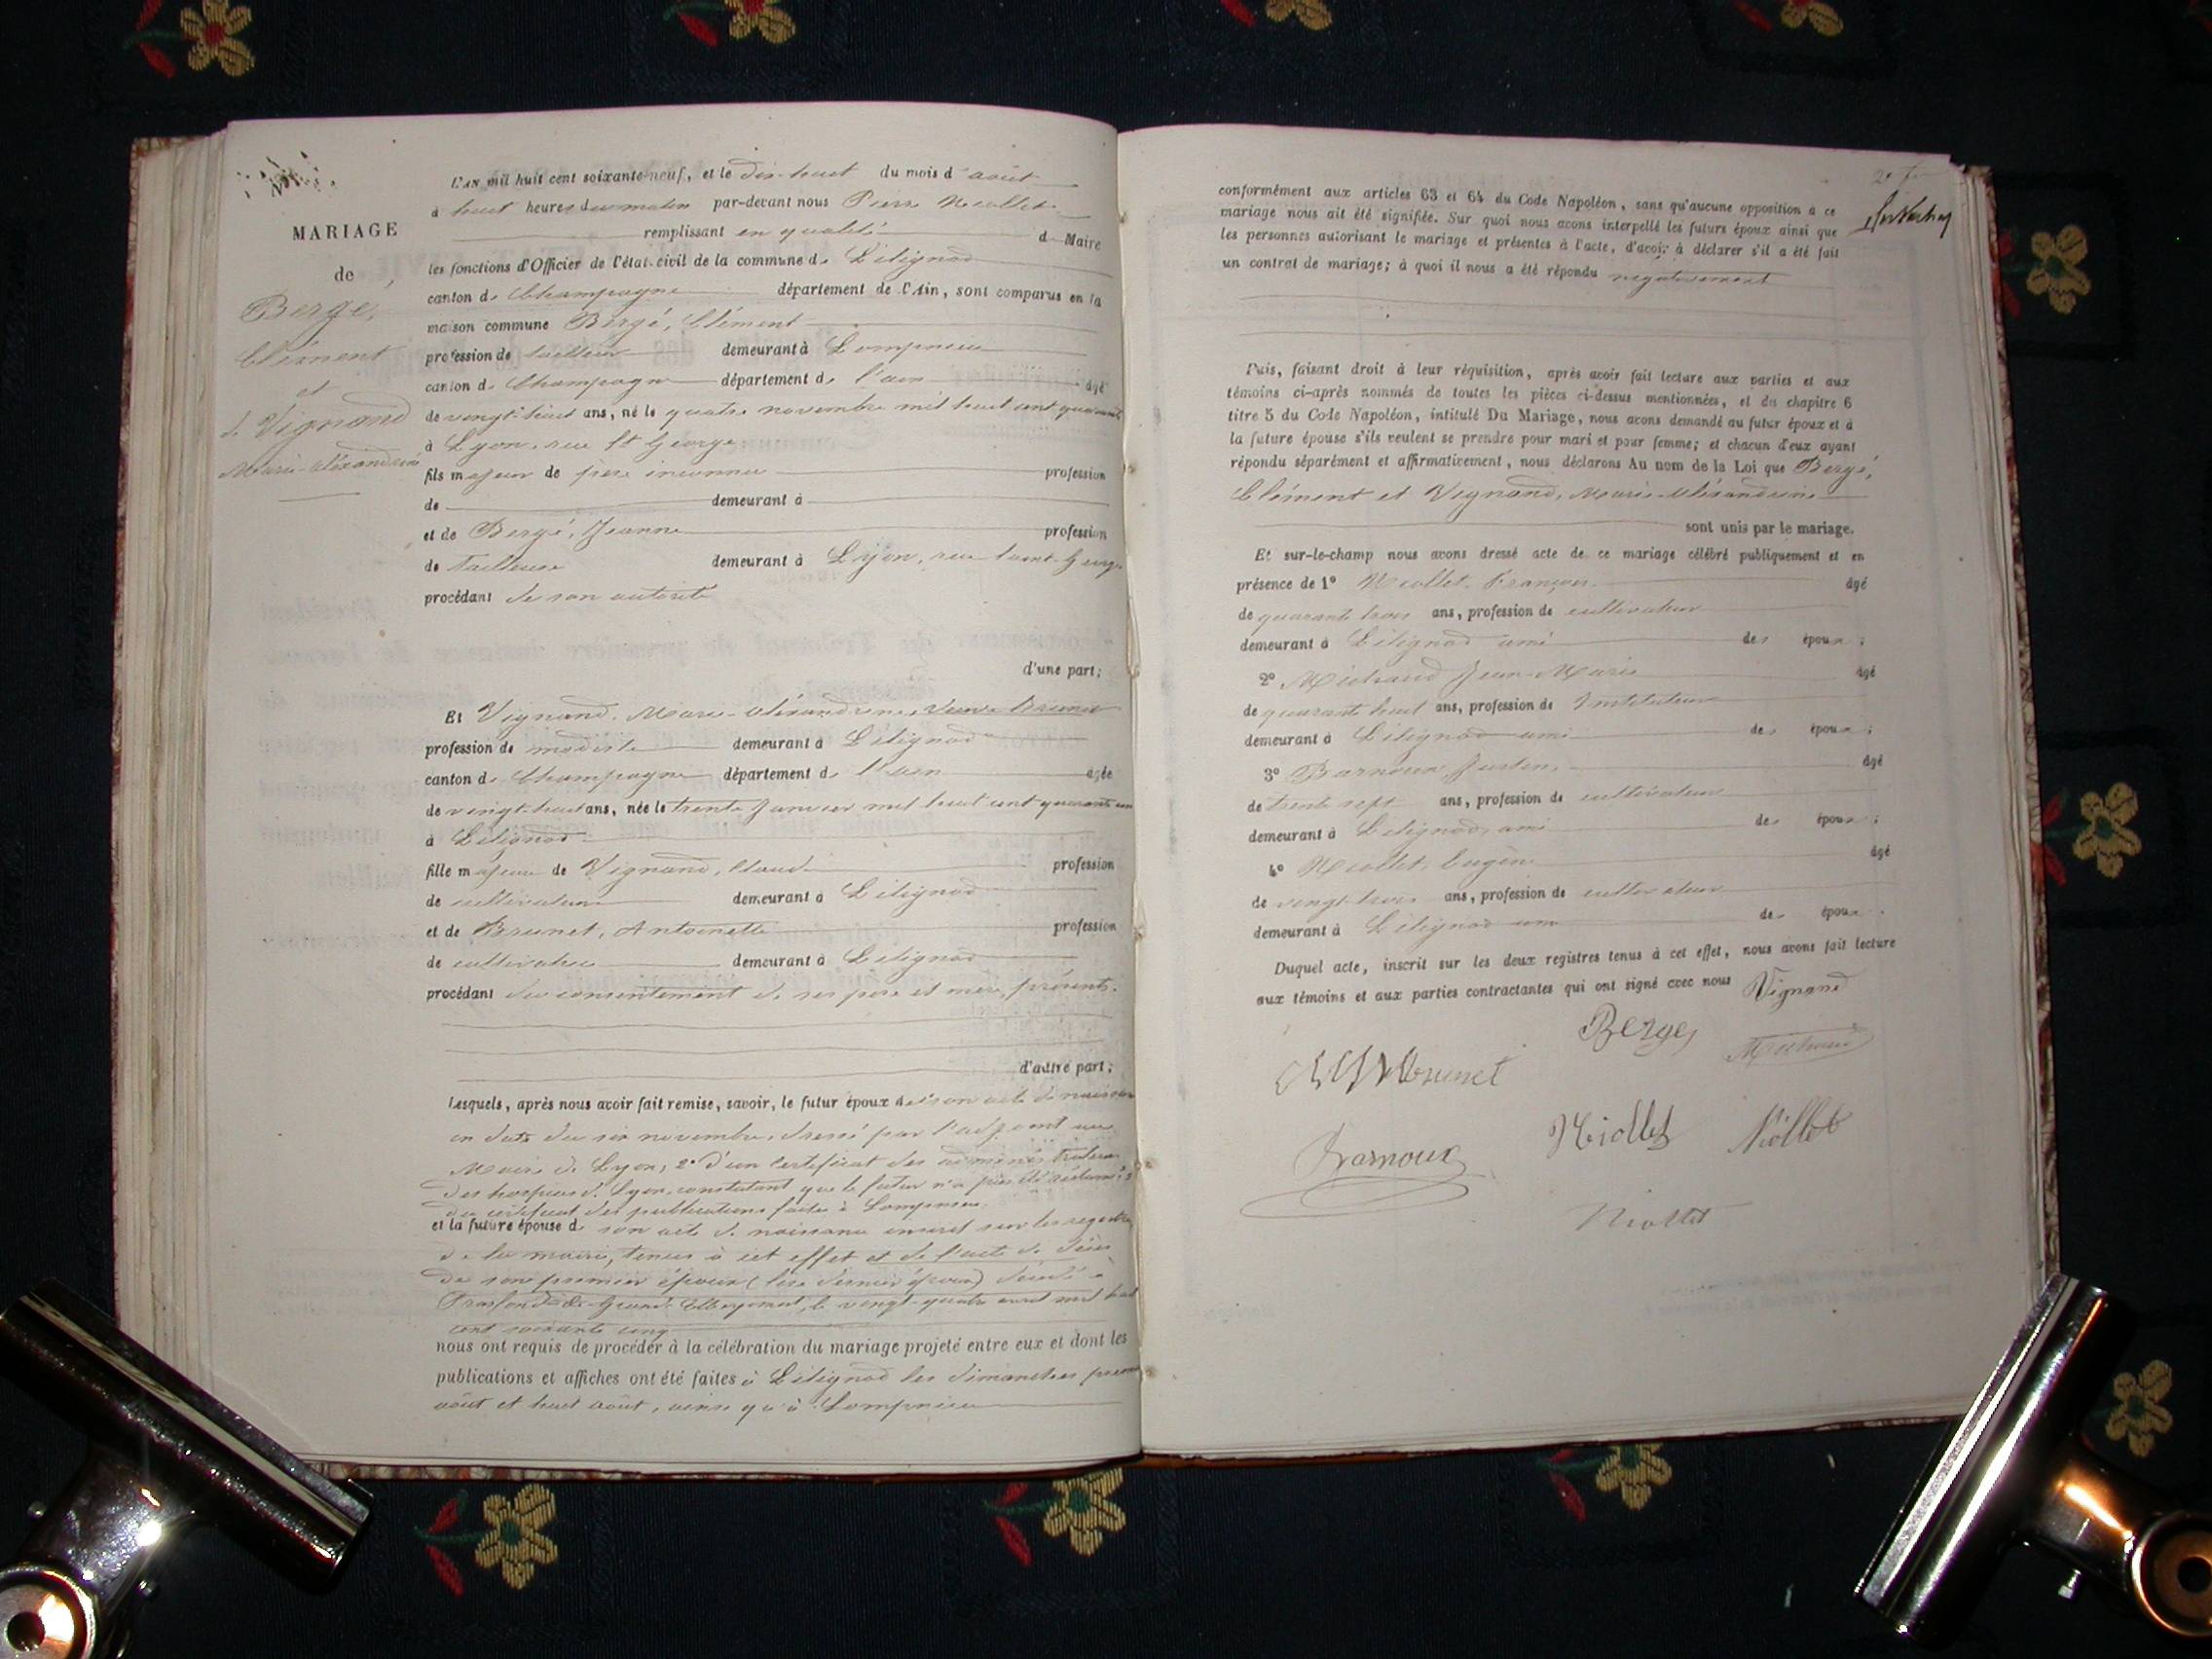 MARIAGE
de
Bergé,
Clément
et
d. Vignand
Marie-Aléxandrine
L'AN mil huit cent soixante-neuf, et le dix-huit du mois d'août
à huit heures du matin par-devant nous Pierre Niollet
remplissant en qualité d Maire
les fonctions d'Officier de l'état-civil de la commune de Lilignod
canton de Champagne département de l'Ain, sont comparus en la
maison commune Bergé, Clément
profession de tailleur demeurant à Lompnieu
canton de Champagne département de l'ain âgé
de vingt-huit ans, né le quatre novembre mil huit cent quarante
à Lyon, rue St George
fils majeur de père inconnu profession
de demeurant à
et de Bergé, Jeanne profession
de Tailleuse demeurant à Lyon, rue Saint-George
procédant de son autorité
d'une part;
Et Vignand, Marie-Aléxandrine, veuve Brunet
profession de modiste demeurant à Lilignod
canton de Champagne département de l'ain âgée
de vingt-huit ans, née le trente Janvier mil huit cent quarante un
à Lilignod
fille majeure de Vignand, Claude profession
de cultivateur demeurant à Lilignod
et de Brunet, Antoinette profession
de cultivatrice demeurant à Lilignod
procédant du consentement de ses père et mère, présents.
d'autre part;
Lesquels, après nous avoir fait remise, savoir, le futur époux de son acte de naissance
en date du six novembre, dressé par l'adjoint au
Maire de Lyon, 2° d'un certificat des administrateurs
des hospices de Lyon, constatant que le futur n'a pas été réclamé; 3°
du certificat des publications faites à Lompnieu.
et la future épouse de son acte de naissance inscrit sur les registres
de la mairie, tenus à cet effet et de l'acte de décès
de son premier époux décédé à
le vingt-quatre avril mil huit
cent soixante cinq
nous ont requis de procéder à la célébration du mariage projeté entre eux et dont les
publications et affiches ont été faites à Lilignod les dimanches premier
août et huit août, ainsi qu'à Lompnieu
conformément aux articles 63 et 64 du Code Napoléon, sans qu'aucune opposition à ce
mariage nous ait été signifiée. Sur quoi nous avons interpellé les futurs époux ainsi que
les personnes autorisant le mariage et présentes à l'acte, d'avoir à déclarer s'il a été fait
un contrat de mariage; à quoi il nous a été répondu négativement
Puis, faisant droit à leur réquisition, après avoir fait lecture aux parties et aux
témoins ci-après nommés de toutes les pièces ci-dessus mentionnées, et du chapitre 6
titre 5 du Code Napoléon, intitulé Du Mariage, nous avons demandé au futur époux et à
la future épouse s'ils veulent se prendre pour mari et pour femme; et chacun d'eux ayant
répondu séparément et affirmativement, nous déclarons Au nom de la Loi que Bergé,
Clément et Vignand, Marie-Aléxandrine
sont unis par le mariage.
Et sur-le-champ nous avons dressé acte de ce mariage célébré publiquement et en
présence de 1° Niollet, François âgé
de quarante trois ans, profession de cultivateur
demeurant à Lilignod ami des époux;
2° Michaud Jean-Marie âgé
de quarante huit ans, profession de Instituteur
demeurant à Lilignod ami des époux;
3° Barnoux Justin, âgé
de trente sept ans, profession de cultivateur
demeurant à Lilignod, ami des époux;
4° Niollet, Eugène âgé
de vingt-trois ans, profession de cultivateur
demeurant à Lilignod ami des époux.
Duquel acte, inscrit sur les deux registres tenus à cet effet, nous avons fait lecture
aux témoins et aux parties contractantes qui ont signé avec nous Vignand
Berge
Brunet
Michaud
Niollet
Niollet
Barnoux
Niollet